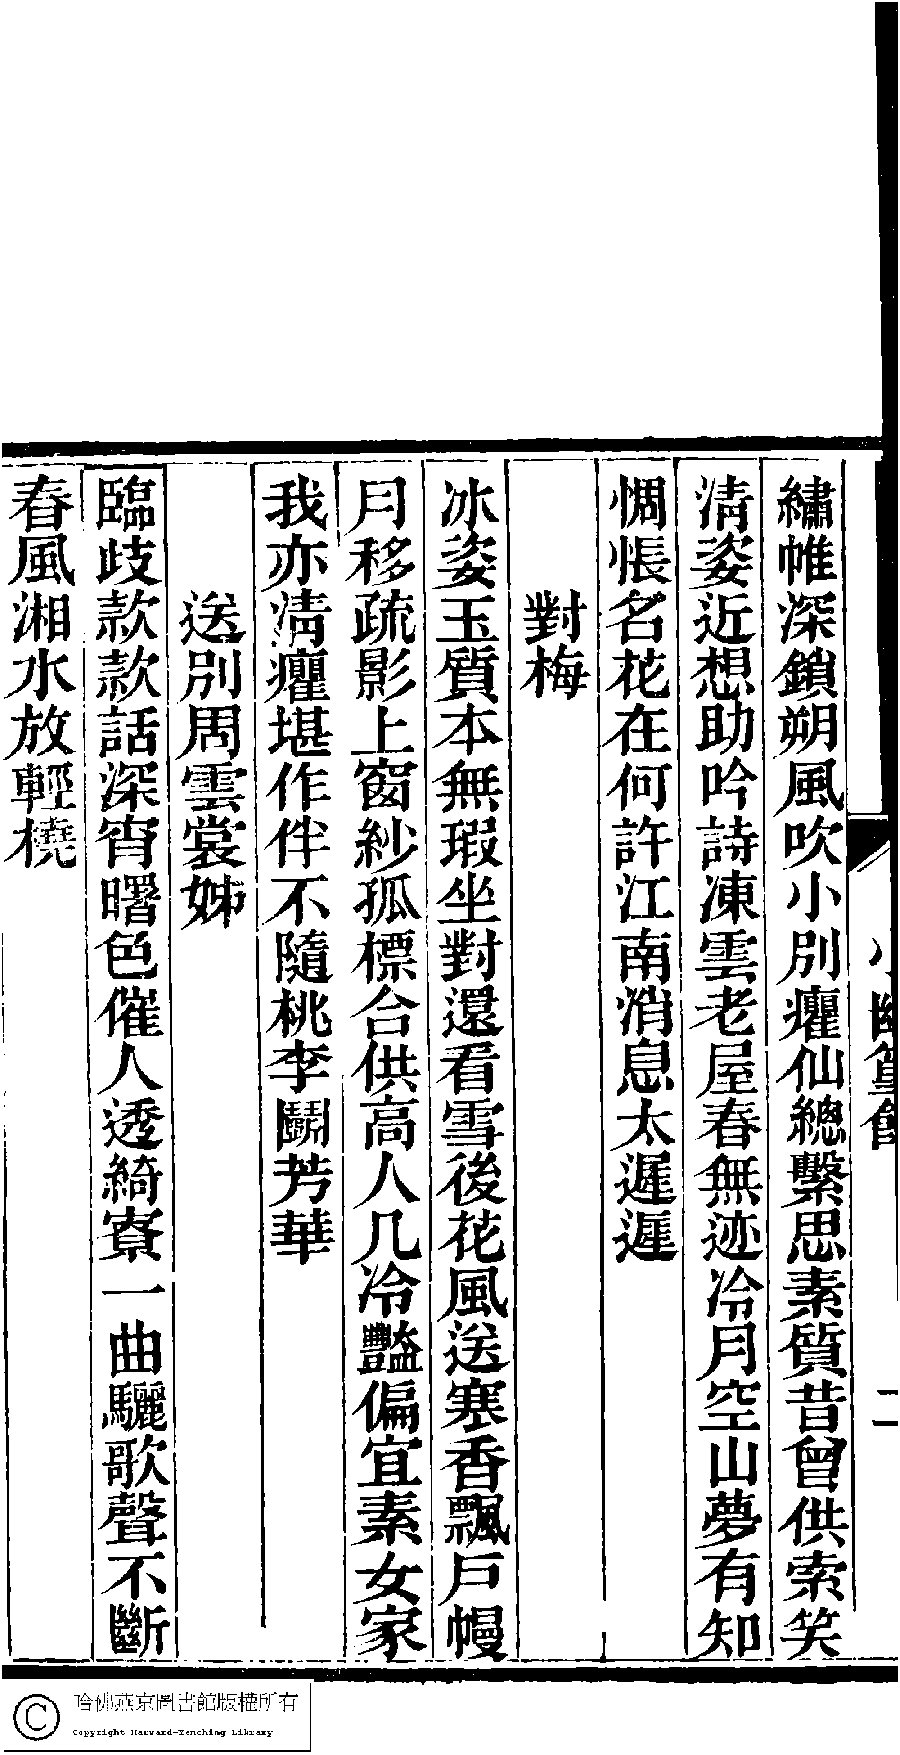 繡帷深鎖朔風吹小別癯仙總繫思素質昔曾供索笑
淸姿近想助吟詩凍雲老屋春無迹冷月空山夢有知
惆悵名花在何許江南消息太遲遲
對梅
冰姿玉質本無瑕坐對還看雪後花風送寒香飄戶幔
月移疏影上窗紗孤標合供高人几冷豔偏宜素女家
我亦淸癯堪作伴不隨桃李鬭芳華
送別周雲裳姊
臨歧款款話深宵曙色催人透綺寮一曲驪歌聲不斷
春風湘水放輕橈
哈佛燕京圖書館版權所有
Copyright Harvard-Yenching Library